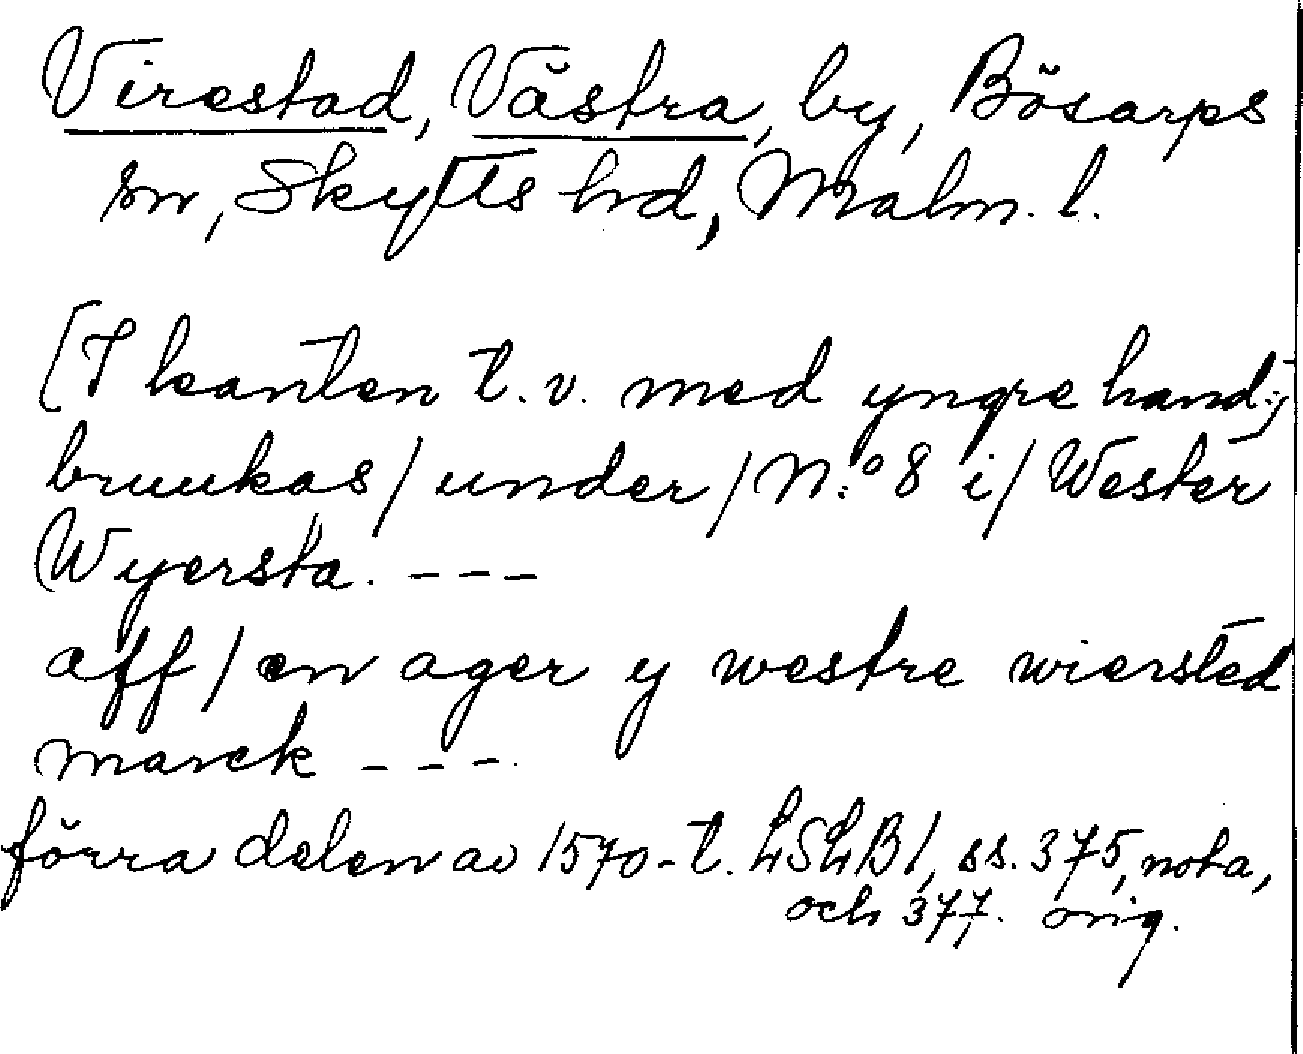 Virestad, Västra, by, Bösarps
sn, Skytts hd, Malm. l.
[I kanten t.v. med yngre hand:]
bruukas / under / N:o 8 i / Wester
Wyersta. ---
aff / en ager y westre wiersted
marck ---.
förra delen av 1570-t. LSLB1, ss. 375, nota,
och 377. orig.